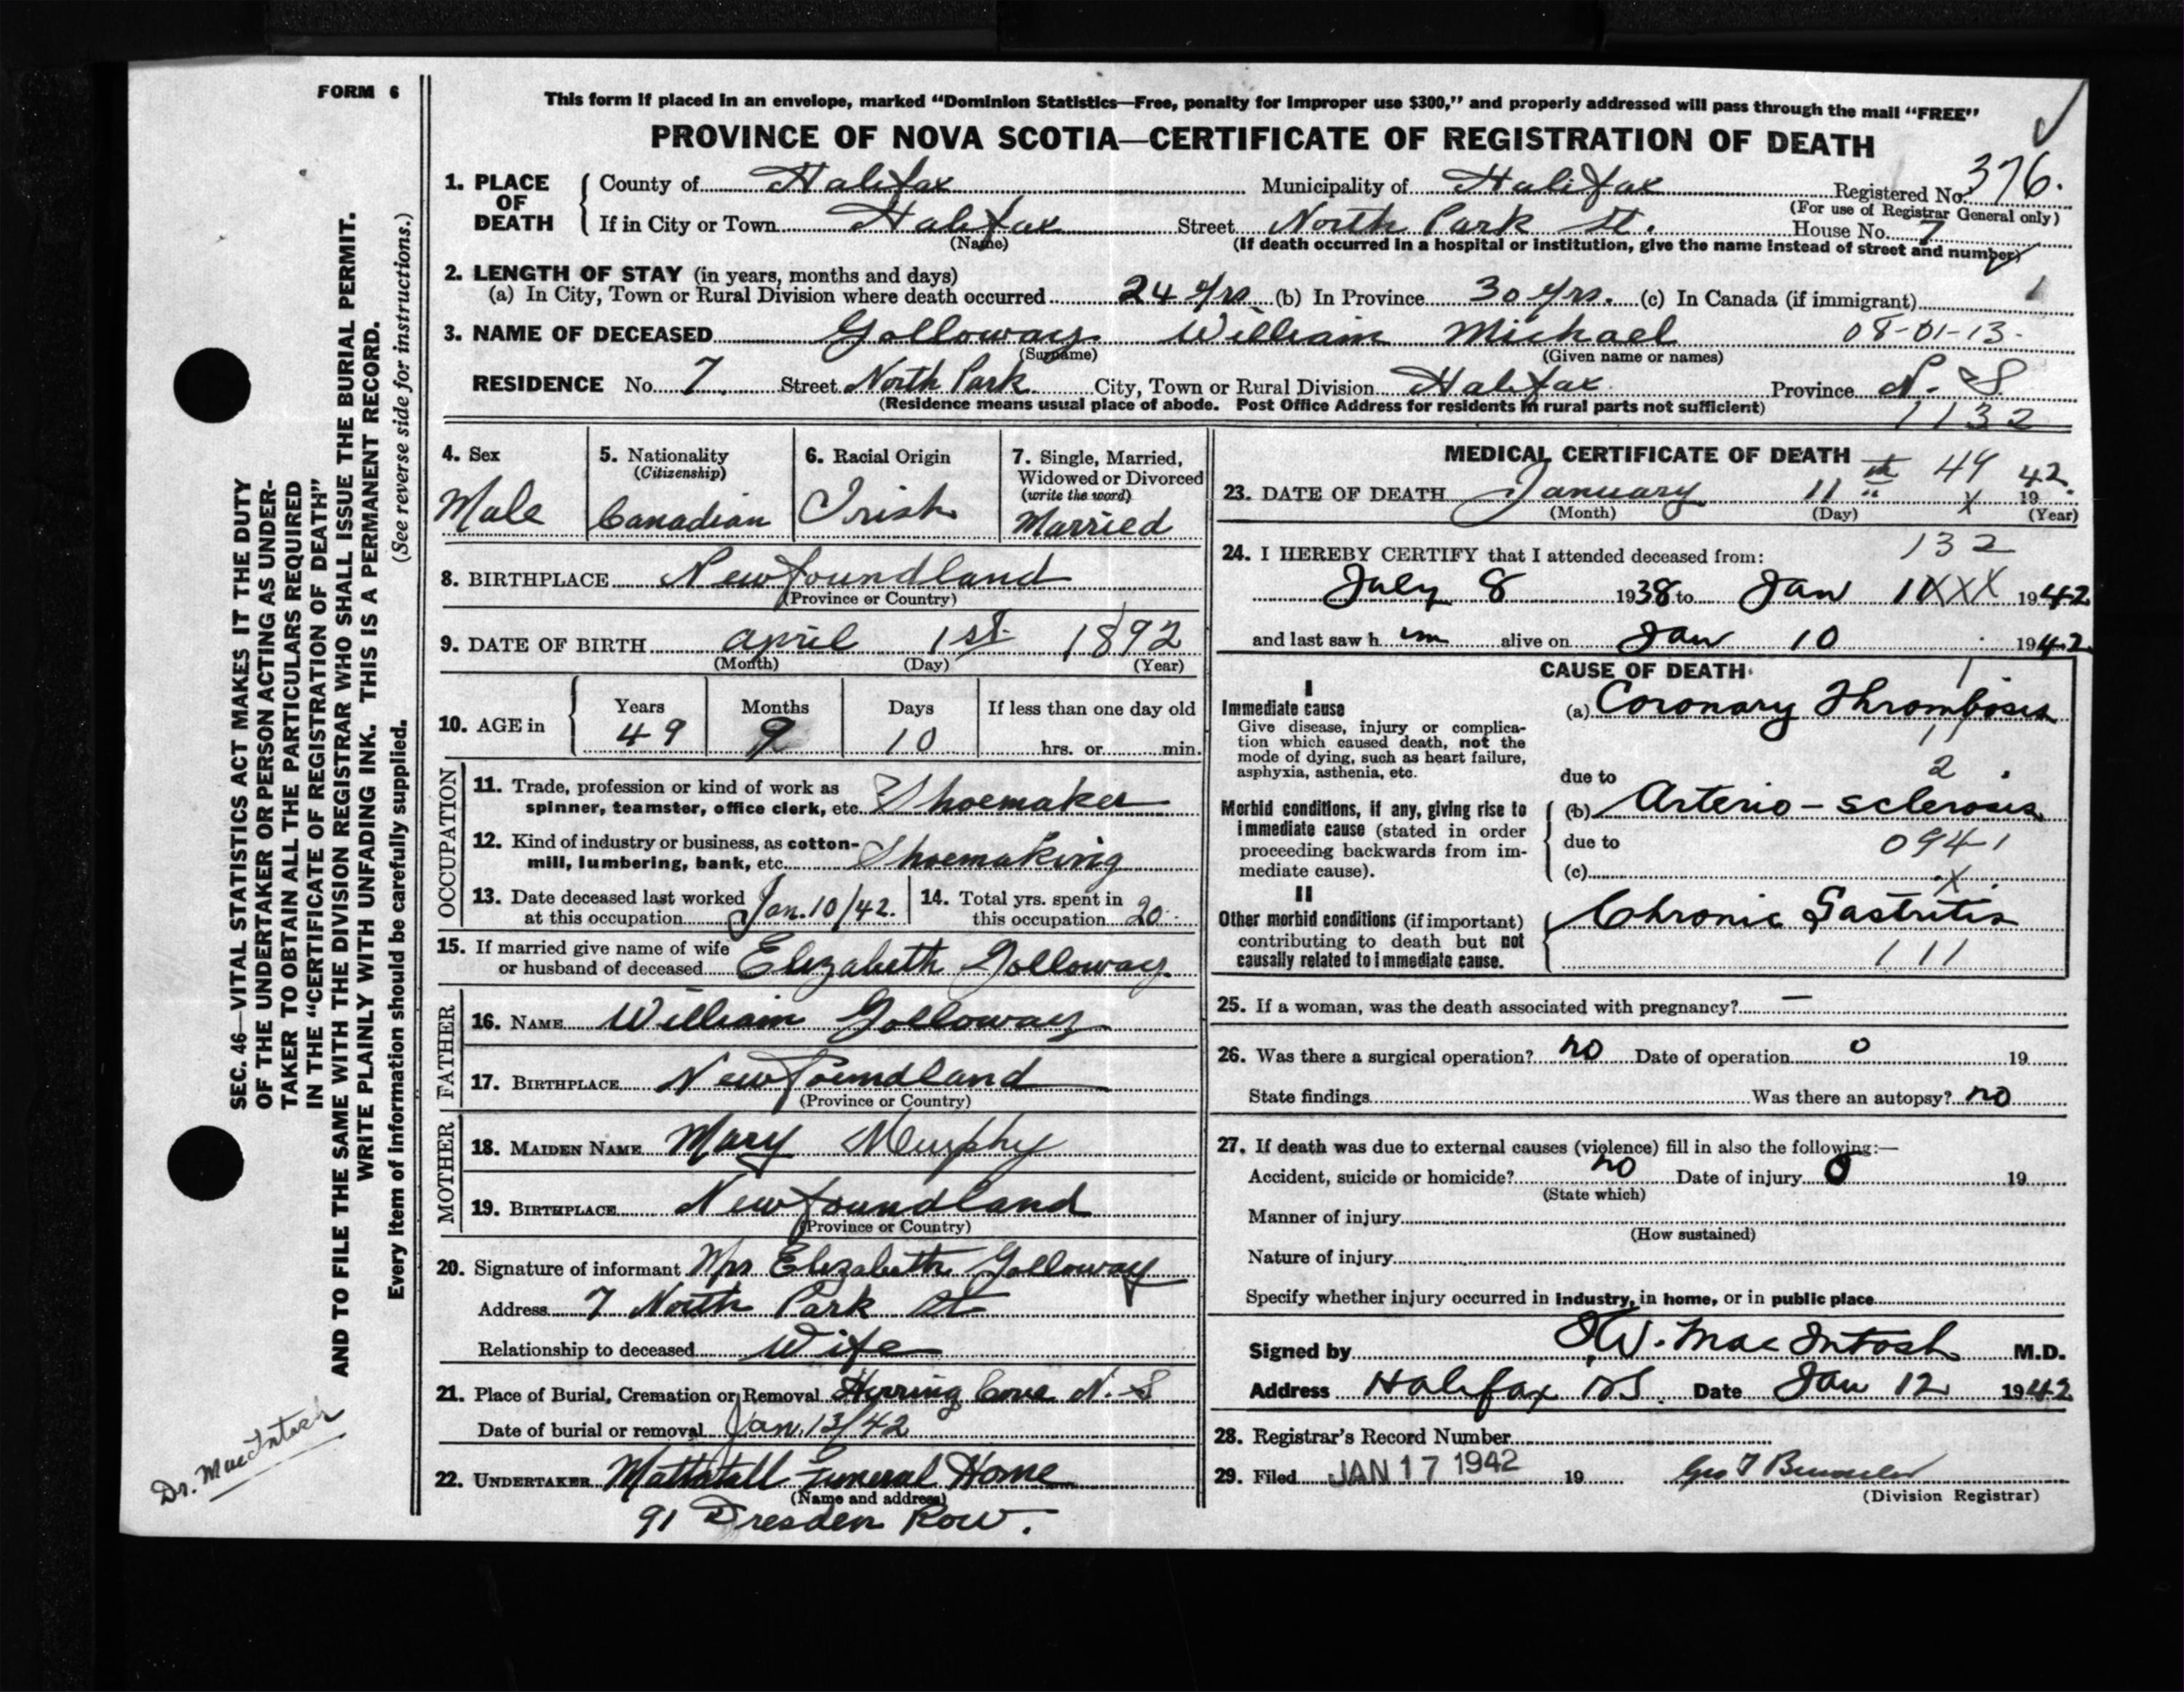 FORM 6
This form if placed in an envelope, marked “Dominion Statistics—Free, penalty for improper use $300,” and properly addressed will pass through the mail “FREE”
PROVINCE OF NOVA SCOTIA—CERTIFICATE OF REGISTRATION OF DEATH
1. PLACE OF DEATH { County of Halifax Municipality of Halifax Registered No. 376.
(For use of Registrar General only)
If in City or Town Halifax Street North Park St. House No. 7
(Name) (If death occurred in a hospital or institution, give the name instead of street and number)
2. LENGTH OF STAY (in years, months and days)
(a) In City, Town or Rural Division where death occurred 24 yrs (b) In Province 30 yrs. (c) In Canada (if immigrant) 1
3. NAME OF DECEASED Golloway William Michael 08-01-13-
(Surname) (Given name or names)
RESIDENCE No. 7 Street North Park City, Town or Rural Division Halifax Province N. S.
(Residence means usual place of abode. Post Office Address for residents in rural parts not sufficient) 1132
4. Sex Male
5. Nationality (Citizenship) Canadian
6. Racial Origin Irish
7. Single, Married, Widowed or Divorced (write the word) Married
8. BIRTHPLACE Newfoundland
(Province or Country)
9. DATE OF BIRTH April 1st 1892
(Month) (Day) (Year)
10. AGE in { Years 49 Months 9 Days 10 If less than one day old hrs. or min.
OCCUPATION
11. Trade, profession or kind of work as
spinner, teamster, office clerk, etc. Shoemaker
12. Kind of industry or business, as cotton-
mill, lumbering, bank, etc. Shoemaking
13. Date deceased last worked
at this occupation Jan. 10/42.
14. Total yrs. spent in
this occupation 20
15. If married give name of wife
or husband of deceased Elizabeth Golloway.
FATHER
16. NAME William Golloway
17. BIRTHPLACE Newfoundland
(Province or Country)
MOTHER
18. MAIDEN NAME Mary Murphy
19. BIRTHPLACE Newfoundland
(Province or Country)
20. Signature of informant Mrs Elizabeth Golloway
Address 7 North Park St
Relationship to deceased Wife
21. Place of Burial, Cremation or Removal Herring Cove N. S
Date of burial or removal Jan. 13/42
22. UNDERTAKER Mattatall Funeral Home
(Name and address)
91 Dresden Row.
MEDICAL CERTIFICATE OF DEATH
23. DATE OF DEATH January 11th 49 1942.
(Month) (Day) X (Year)
24. I HEREBY CERTIFY that I attended deceased from: 132
July 8 1938 to Jan 11 XXX 1942
and last saw him alive on Jan 10 1942
CAUSE OF DEATH
I
Immediate cause
Give disease, injury or complica-
tion which caused death, not the
mode of dying, such as heart failure,
asphyxia, asthenia, etc.
(a) Coronary Thrombosis
due to 2
Morbid conditions, if any, giving rise to
immediate cause (stated in order
proceeding backwards from im-
mediate cause).
(b) Arterio-sclerosis
due to 0941
(c) X
II
Other morbid conditions (if important)
contributing to death but not
causally related to immediate cause.
Chronic Gastritis
111
25. If a woman, was the death associated with pregnancy? —
26. Was there a surgical operation? no Date of operation 0 19
State findings Was there an autopsy? no
27. If death was due to external causes (violence) fill in also the following:—
Accident, suicide or homicide? no Date of injury 0 19
(State which)
Manner of injury
(How sustained)
Nature of injury
Specify whether injury occurred in industry, in home, or in public place
Signed by W. MacIntosh M.D.
Address Halifax NS Date Jan 12 1942
28. Registrar's Record Number
29. Filed JAN 17 1942 19 Geo
(Division Registrar)
SEC. 46—VITAL STATISTICS ACT MAKES IT THE DUTY
OF THE UNDERTAKER OR PERSON ACTING AS UNDER-
TAKER TO OBTAIN ALL THE PARTICULARS REQUIRED
IN THE “CERTIFICATE OF REGISTRATION OF DEATH”
AND TO FILE THE SAME WITH THE DIVISION REGISTRAR WHO SHALL ISSUE THE BURIAL PERMIT.
WRITE PLAINLY WITH UNFADING INK. THIS IS A PERMANENT RECORD.
Every item of information should be carefully supplied. (See reverse side for instructions.)
Dr. MacIntosh